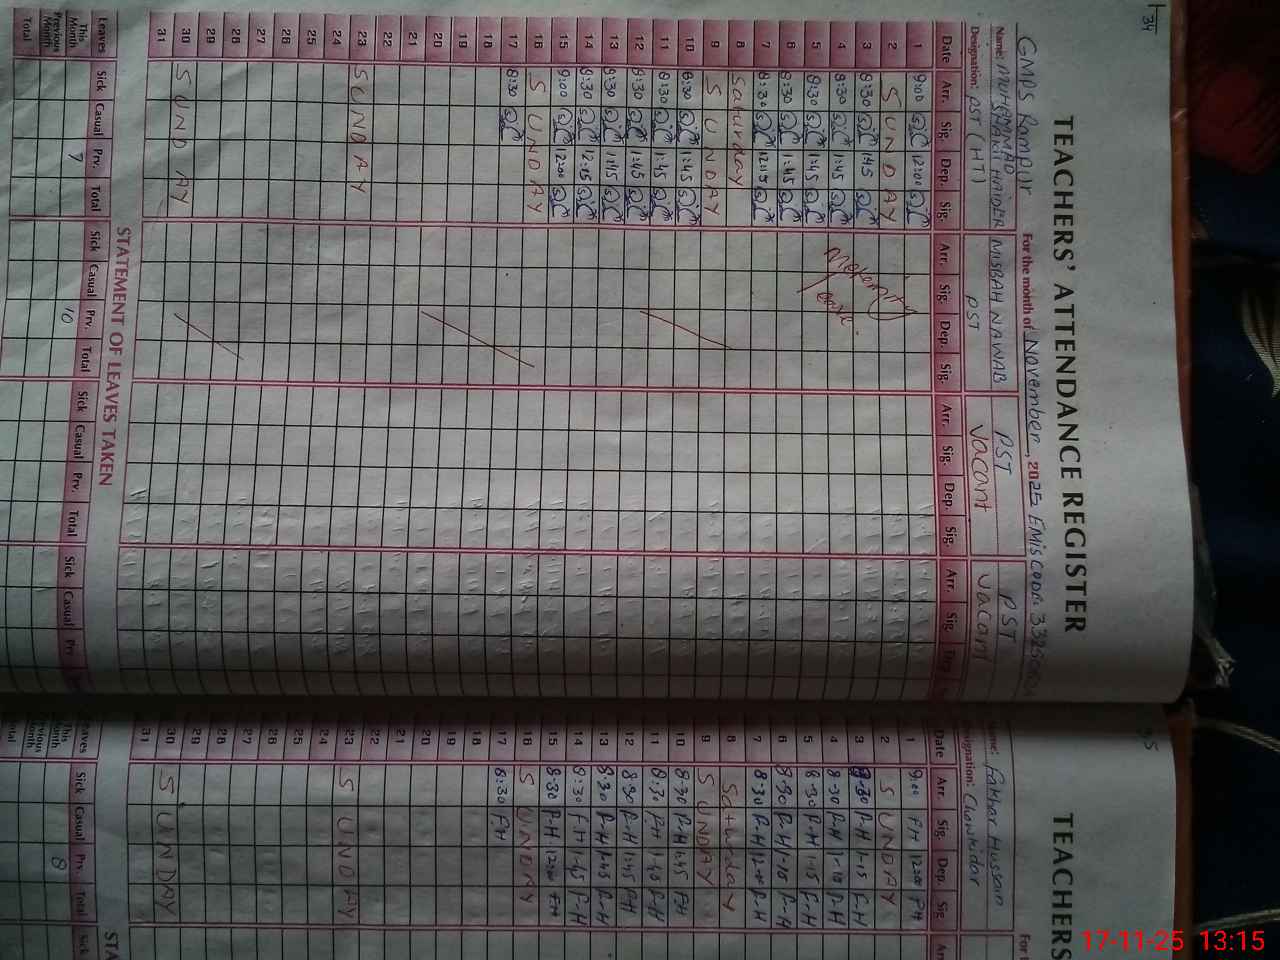 34
TEACHERS' ATTENDANCE REGISTER
GMPS Rampur For the month of November, 2025 EMIS CODE:
Name: MUHAMMAD SHAKIR HAIDER MISBAH NAWAB PST PST
Designation: PST (HT) PST Vacant Vacant
Date Arr. Sig. Dep. Sig. Arr. Sig. Dep. Sig. Arr. Sig. Dep. Sig. Arr. Sig. Dep.
1 9:00 12:00
2 SUNDAY
3 8:30 1:45
4 8:30 1:45
5 8:30 1:45
6 8:30 1:45
7 8:30 12:15
8 Saturday
9 SUNDAY
10 8:30 1:45
11 8:30 1:45
12 8:30 1:45
13 8:30 1:45
14 8:30 12:15
15 9:00 12:00
16 SUNDAY
17 8:30
18
19
20
21
22
23 SUNDAY
24
25
26
27
28
29
30 SUNDAY
31
Maternity
STATEMENT OF LEAVES TAKEN
Leaves Sick Casual Prv. Total Sick Casual Prv. Total Sick Casual Prv. Total Sick Casual
This Month 7 10
Previous Month
Total
TEACHERS
Name: Fakhar Hussain
Designation: Chowkidar
Date Arr. Sig. Dep. Sig
1 9:00 F.H 12:00 F.H
2 SUNDAY
3 8:30 F-H 1-15 F-H
4 8-30 F-H 1-10 F-H
5 8-30 F-H 1-15 F-H
6 8-30 F-H 1-10 F-H
7 8-30 F-H 12-00 F-H
8 Saturday
9 SUNDAY
10 8-30 F-H 1.45 F.H
11 8:30 F.H 1-40 F-H
12 8-30 F-H 1:45 F.H
13 8-30 F-H 1-45 F-H
14 8:30 F.H 1-45 F-H
15 8-30 F-H 12:00 F.H
16 SUNDAY
17 8:30 F.H
18
19
20
21
22
23 SUNDAY
24
25
26
27
28
29
30 SUNDAY
31
Leaves Sick Casual Prv. Total Sick
This Month 8
Previous Month
Total
STA
17-11-25 13:15